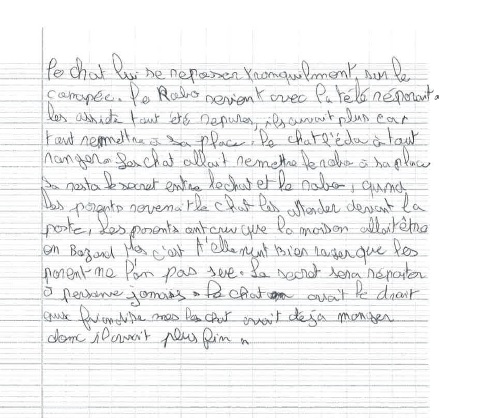 Le chat lui se repasser tranquilment, sur le
canapée. Le Robo revient avec la télé réparait.
les assiete tout été reparer, ils avait plus car
tout remettre à sa place. Le chat l'éda à tout
ranger. Les chat allait remettre le robo à sa place
Sa resta le secret entre le chat et le robo, quand
les parents revenait le chat les attender devant la
porte, Les parents ont cru que la maison allait être
en Bazard Mes c'est t'ellement Bien ranger que les
parent ne l'on pas sue. Le secret sera répéter
à persone jamais. Le chat avait le droit
aux friandise mes le chat avait déja manger
donc il avait plus fin.